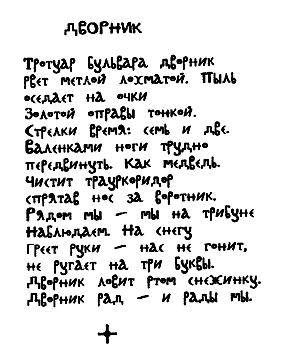 ДВОРНИК
Тротуар бульвара дворник
рвет метлой лохматой. Пыль
оседает на очки
Золотой оправы тонкой.
Стрелки время: семь и две.
Валенками ноги трудно
передвинуть. Как медведь.
Чистит трауркоридор
спрятав нос за воротник.
Рядом мы — мы на трибуне
Наблюдаем. На снегу
Греет руки — нас не гонит,
не ругает на три буквы.
Дворник ловит ртом снежинку.
Дворник рад — и рады мы.